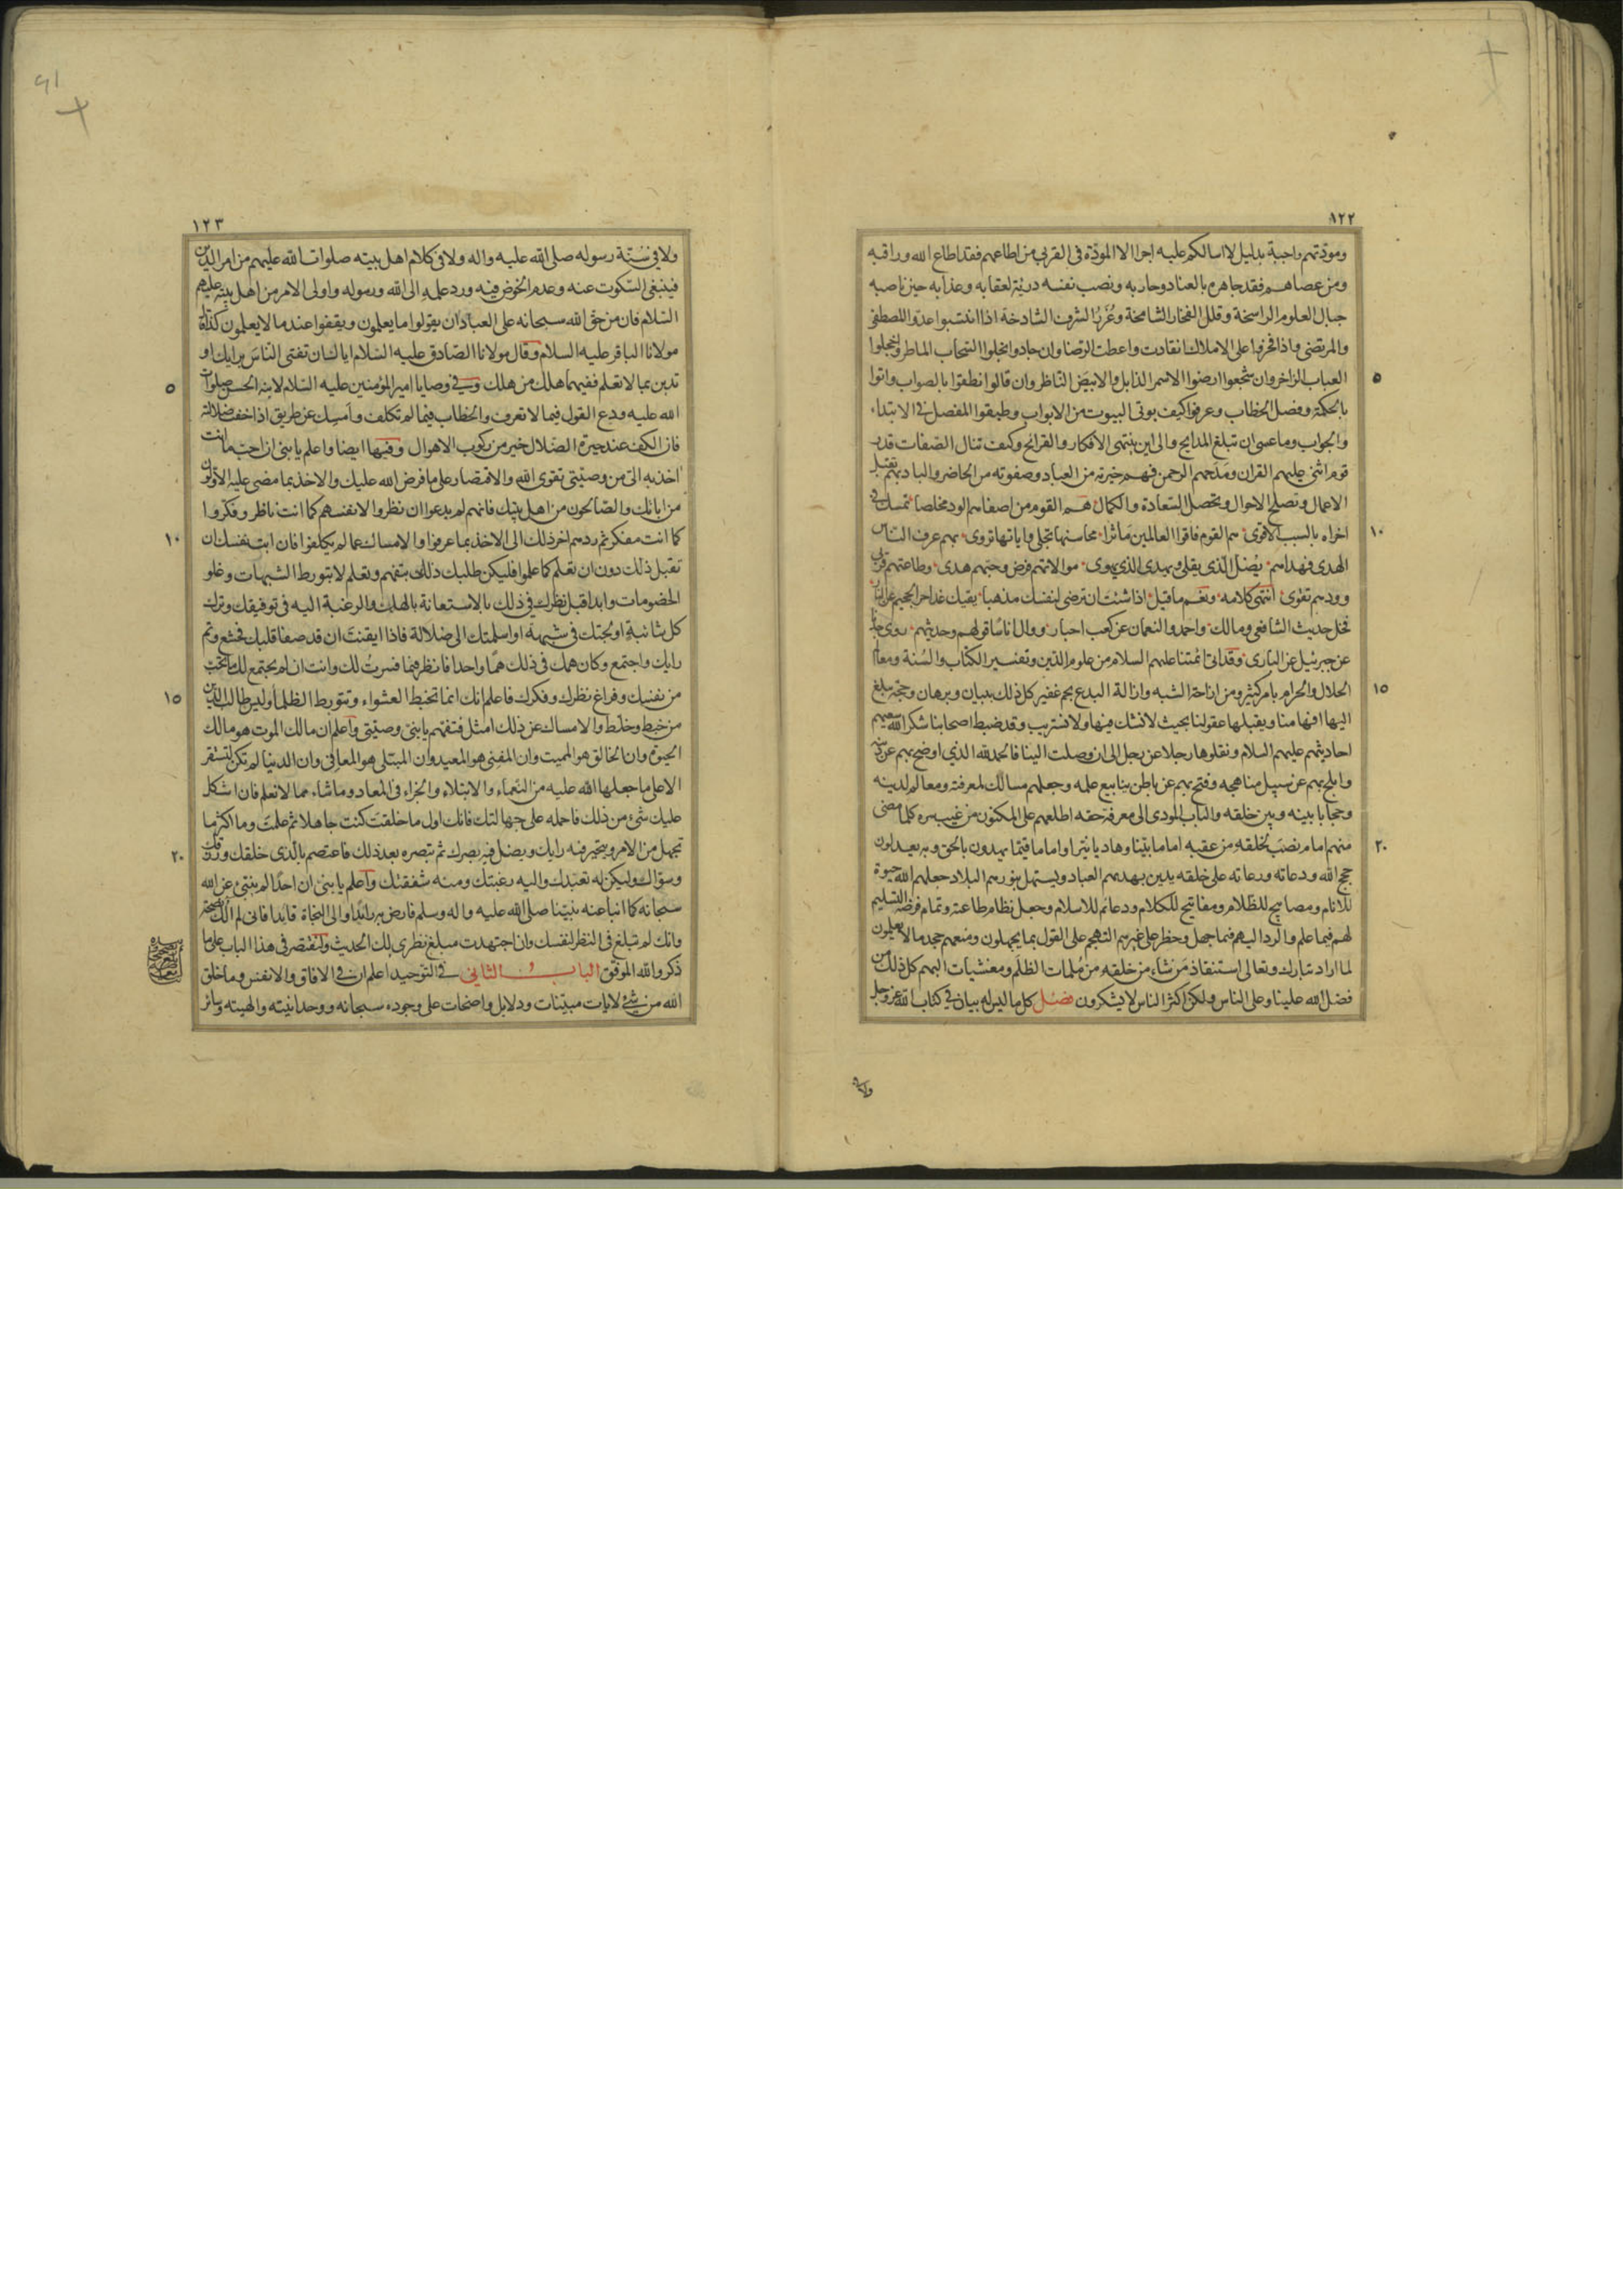 ١٢٢
ومودّتهم واجبة بدليل لا اسالكم عليه اجرا الا المودّة فى القربى من اطاعهم فقد اطاع الله وراقبه
ومن عصاهم فقد جاهره بالعناد وحاربه ونصب نفسه دريئة لعقابه وعذابه حين ناصبه
جبال العلوم الراسخة وقلل الفخار الشامخة وغُرَرُ الشرف الشادخة اذا انتسبوا عدّوا المصطفى
والمرتضى واذا فخروا على الاملاك انقادت واعطت الرضا وان جادوا بخلوا السّحاب الماطر واخجلوا
٥
العباب الزاخر وان شجعوا ارضوا الاسمر الذابل والابيض الناظر وان قالوا نطقوا بالصواب واتوا
بالحكمة وفصل الخطاب وعرفوا كيف يوتى البيوت من الابواب وطبقوا المفصل فى الابتداء
والجواب وما عسى ان تبلغ المدايح والى اين ينتهى الافكار والقرائح وكيف تنال الصّفات قدر
قوم اثنى عليهم القران ومَدَحهم الرحمن فهم خيرته من العباد وصفوته من الحاضر والباد بهم تقبل
الاعمال وتصلح الاحوال وتحصل السّعادة والكمال هم القوم من اصفاهم الود مخلصا تمسك فى
١٠
اخراه بالسبب الاقوى هم القوم فاقوا العالمين مَاثرا محاسنها تجلى واياتها تروى بهم عرف الناس
الهدى فهداهم يُضلّ الّذى يقلى ويهدى الذى يهوى موالاتهم فرض وحبهم هدى وطاعتهم قربى
وودهم تقوى انتهى كلامه ونعم ما قيل اذا شئت ان ترضى لنفسك مذهبا يقيك غدا حر الجحيم عن النار
فخل حديث الشافعى ومالك واحمد والنعمان عن كعب احبار ووال اناسًا قولهم وحديثهم روى جدّنا
عن جبرئيل عن البارى وقد اتى ائمتنا عليهم السلام من علوم الدّين وتفسير الكتاب والسُنة ومعالم
١٥
الحلال والحرام بامر كثير ومن ازاحة الشبه وازالة البدع بجم غفير كل ذلك ببيان وبرهان وحجّة يبلغ
اليها افهامنا ويقبلها عقولنا بحيث لا نشك فيها ولا نستريب وقد ضبط اصحابنا شكر الله سعيهم
احاديثهم عليهم السلام ونقلوها رجلا عن رجل الى ان وصلت الينا فالحمد لله الذى اوضح بهم عن دينه
وابلج بهم عن سبيل مناهجه وفتح بهم عن باطن ينابيع علمه وجعلهم مسالك لمعرفته ومعالم لدينه
وحجابا بينه وبين خلقه والباب المودى الى معرفة حقه اطلعهم على المكنون من غيب سره كلما مضى
٢٠
منهم امام نصَبَ لخلقه من عقبه اماما بيّنا وهاديا نيّرا واماما قيّما يهدون بالحق وبه يعدلون
حجج الله ودعاته ورعاته على خلقه يدين بهديهم العباد ويستهل بنورهم البلاد جعلهم الله حيوة
للانام ومصابيح للظلام ومفاتيح للكلام ودعائم للاسلام وجعل نظام طاعته وتمام فرضه التسليم
لهم فيما علم والرد اليهم فيما جهل وحظر على غيرهم التهجم على القول بما يجهلون ومنعهم جحد ما لا يعلمون
لما اراد تبارك وتعالى استنقاذ مَن شاء من خلقه من مُلمات الظلَم ومغشيات البهم كل ذلك من
فضل الله علينا وعلى الناس ولكن اكثر الناس لا يشكرون فصل كل ما ليس له بيان فى كتاب الله عز وجل
ولا فى
١٢٣
ولا فى سُنّة رسوله صلى الله عليه واله ولا فى كلام اهل بيته صلوات الله عليهم من امر الدين
فينبغى السّكوت عنه وعدم الخوض فيه ورد علمه الى الله ورسوله واولى الامر من اهل بيته عليهم
السّلام فان من حق الله سبحانه على العباد ان يقولوا ما يعلمون ويقفوا عند ما لا يعلمون كذا قاله
مولانا الباقر عليه السلام وقال مولانا الصّادق عليه السّلام اياك ان تفتى النّاسَ برايك او
٥
تدين بما لا تعلم ففيهما هلك من هلك وفى وصايا امير المؤمنين عليه السّلام لابنه الحسن صلوات
الله عليه ودع القول فيما لا تعرف والخطاب فيما لم تكلف وامسِك عن طريق اذا خفت ضلالته
فان الكف عند حيرة الضّلال خير من ركوب الاهوال وفيها ايضا واعلم يا بنى ان احبّ ما انت
اخذ به الىّ من وصيّتى تقوى الله والاقتصار على ما فرض الله عليك والاخذ بما مضى عليه الاولون
من ابائك والصّالحون من اهل بيتك فانهم لم يدعوا ان نظروا لانفسهم كما انت ناظر وفكّروا
١٠
كما انت مفكر ثم ردهم اخر ذلك الى الاخذ بما عرفوا والامساك عما لم يكلفوا فان ابت نفسك ان
تقبل ذلك دون ان تعلم كما علموا فليكن طلبك ذلك بتفهم وتعلم لا بتورط الشبهات وغلو
الخصومات وابدا قبل نظرك فى ذلك بالاستعانة بالهك والرغبة اليه فى توفيقك وترك
كل شائبةٍ اولجتك فى شبهة او اسلمتك الى ضلالة فاذا ايقنتَ ان قد صفا قلبك فخشع وتم
رايك واجتمع وكان همك فى ذلك همّا واحدا فانظر فيما فسرتُ لك وانت ان لم يجتمع لك ما تحب
١٥
من نفسك وفراغ نظرك وفكرك فاعلم انك انما تخبط العشواء وتتورط الظلماء وليس طالب الدّين
من خبط وخلط والامساك عن ذلك امثل فتفهم يا بنى وصيّتى واعلم ان مالك الموت هو مالك
الحيوة وان الخالق هو المميت وان المفنى هو المعيد وان المبتلى هو المعافى وان الدنيا لم تكن لتستقر
الا على ما جعلها الله عليه من النّعماء والابتلاء والجزاء فى المعاد وما شاء مما لا تعلم فان اشكل
عليك شىء من ذلك فاحمله على جهالتك فانك اول ما خلقتَ كنت جاهلا ثم علمتَ وما اكثر ما
٢٠
تجهل من الامر ويتحير فيه رايك ويضل فيه بصرك ثم تبصره بعد ذلك فاعتصم بالّذى خلقك ورزقك
وسوّاك وليكن له تعبدك واليه رغبتك ومنه شفقتك واعلم يا بنى ان احدًا لم ينبئ عن الله
سبحانه كما انبا عنه نبيّنا صلى الله عليه واله وسلم فارض به رائدًا والى النجاة قائدا فانى لم الك نصيحة
وانك لم تبلغ فى النظر لنفسك وان اجتهدت مبلغ نظرى لك الحديث ولنقتصر فى هذا الباب على ما
ذكر والله الموفق الباب الثانى فى التوحيد اعلم ان فى الافاق والانفس وما خلق
الله من شىء لايات مبيّنات ودلايل واضحات على وجوده سبحانه ووحدانيته والهيته وسائر